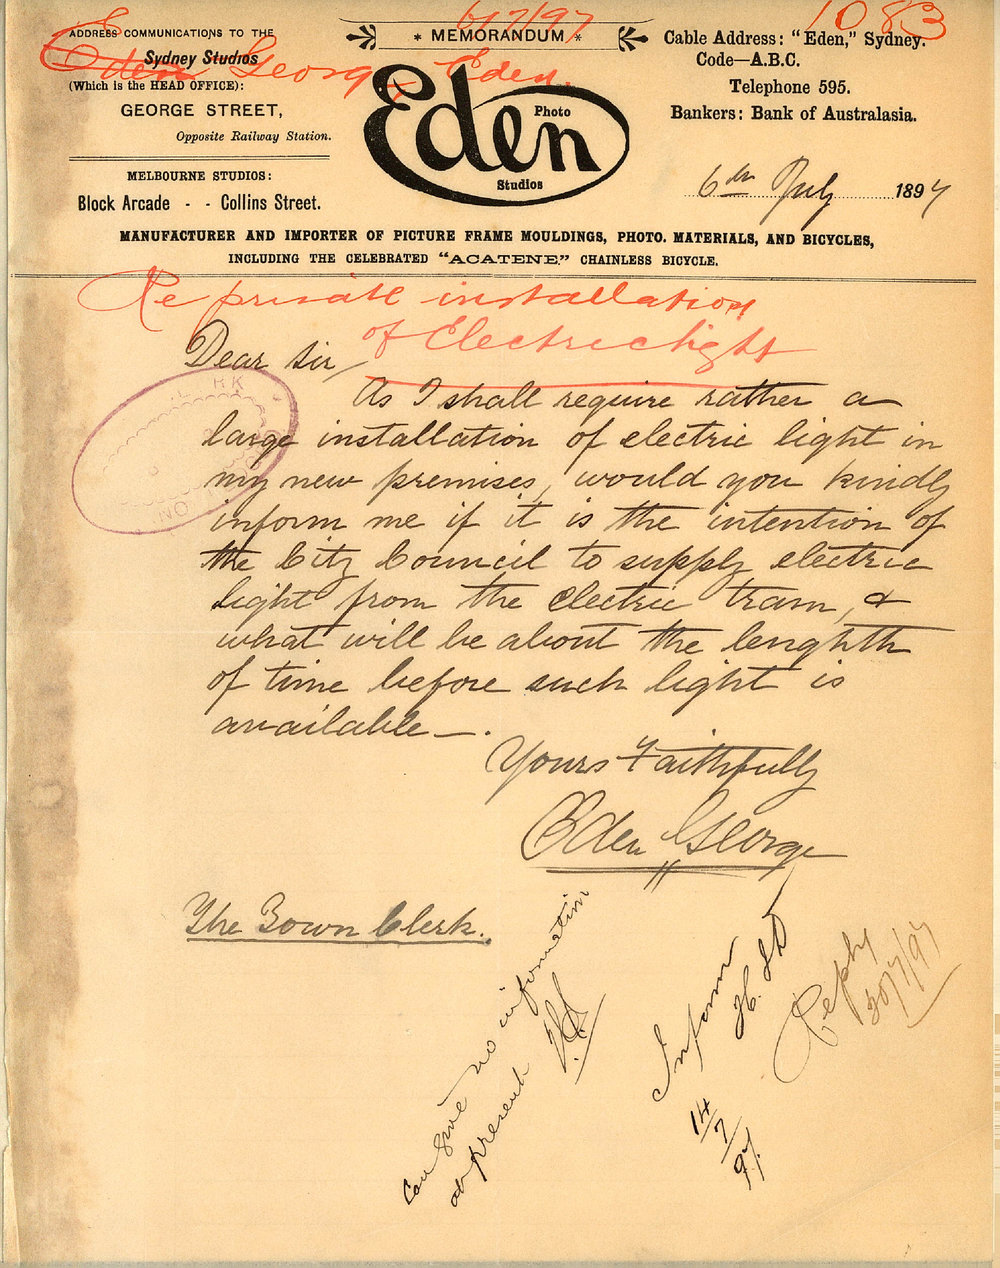 6/7/97
1083
Eden George Eden.
ADDRESS COMMUNICATIONS TO THE
Sydney Studios
(Which is the HEAD OFFICE):
GEORGE STREET,
Opposite Railway Station.
MELBOURNE STUDIOS:
Block Arcade - - Collins Street.
* MEMORANDUM *
Eden
Photo
Studios
Cable Address: "Eden," Sydney.
Code—A.B.C.
Telephone 595.
Bankers: Bank of Australasia.
6th July 1897
MANUFACTURER AND IMPORTER OF PICTURE FRAME MOULDINGS, PHOTO. MATERIALS, AND BICYCLES,
INCLUDING THE CELEBRATED "ACATENE." CHAINLESS BICYCLE.
Re private installation
of Electric light
Dear Sir,
As I shall require rather a
large installation of electric light in
my new premises, would you kindly
inform me if it is the intention of
the City Council to supply electric
light from the electric tram, &
what will be about the lenghth
of time before such light is
available—.
Yours Faithfully
Eden George
The Town Clerk.
Can give no information
at present
Inform
14/7/97.
Reply
30/7/97